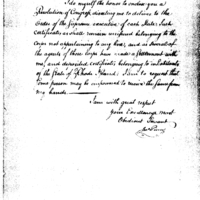 I do myself the honor to enclose you a
Resolution of Congress directing me to deliver to the
Order of the Supreme executive of each State, such
Certificates as shall remain unissued belonging to the
Corps not appertaining to any line, and as several of
the agents of those corps have made a settlement with
me, and deposited certificates belonging to inhabitants
of the State of Rhode Island. I am to request that
some person may be impowered to receive the same from
my hands.
I am with great respect
your Excellencys most
Obedient Servant
Jno Pierce